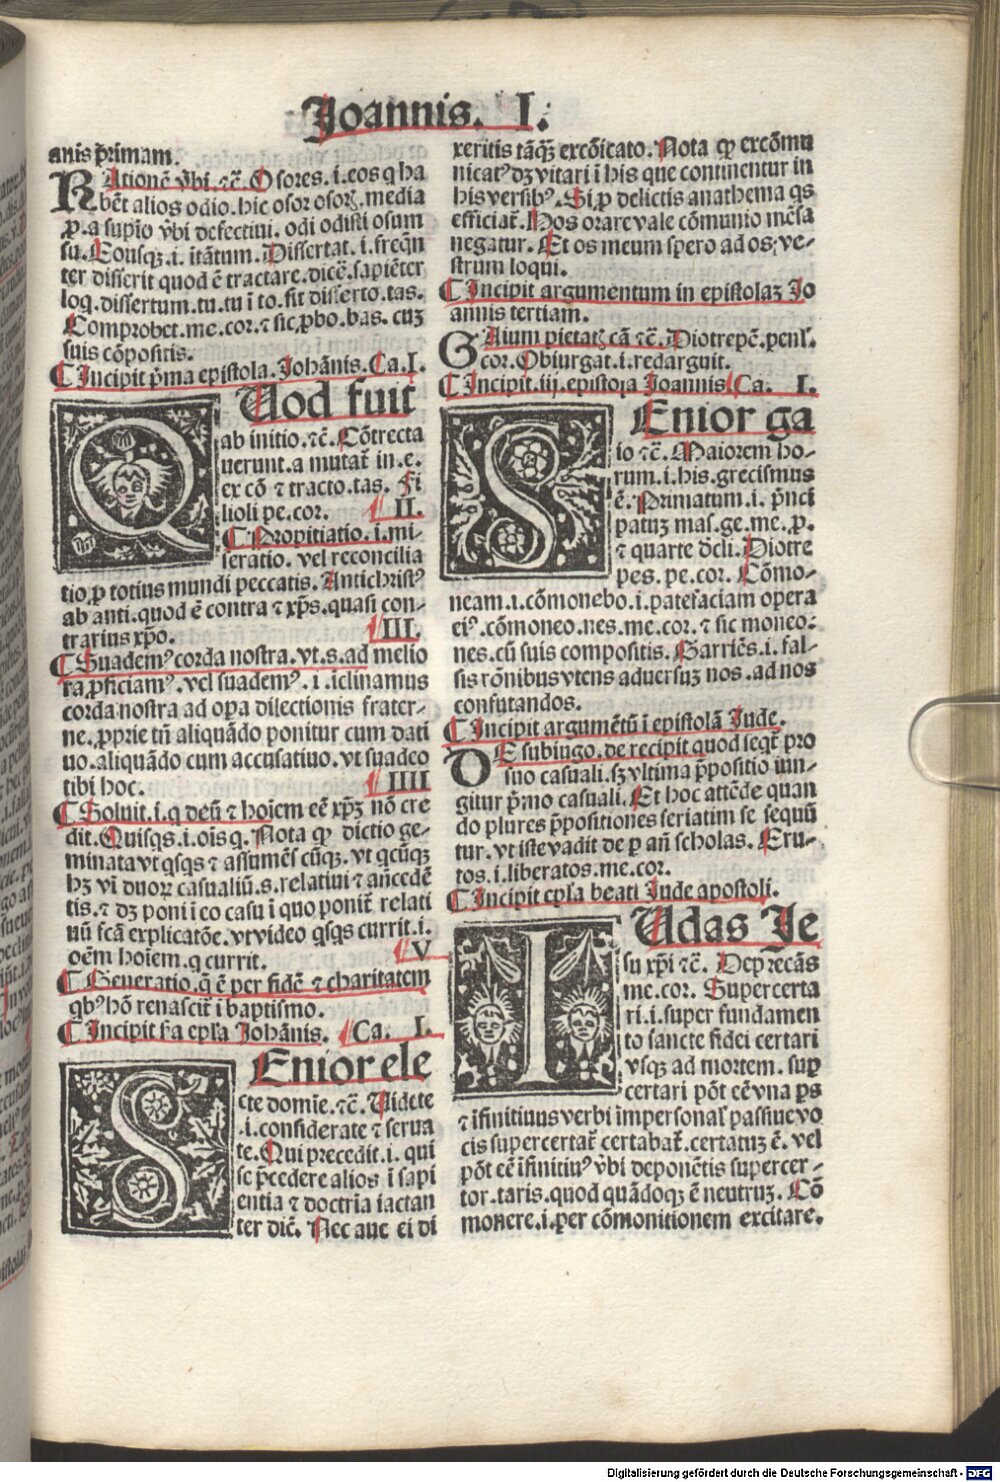 Joannis. I.
anis p̄rimam.
RAtionē v̄bi .⁊c̄. Osores .i. eos q̄ ha
bēt alios odio. hic osor osoꝝ. media
ꝓ. a supīo v̄bi defectiui. odi odisti osum
su. Eousqꝫ .i. itātum. Dissertat .i. freq̄n
ter disserit quod ē tractare. dicē. sapiēter
loq. dissertum. tu. tu ī to. fit disserto. tas.
Comprobet. me. cor. ⁊ sic ꝓbo. bas. cuꝫ
suis cōpositis.
¶ Incipit p̄ma epistola. Johānis. Ca. I.
QUod fuit
ab initio .⁊c̄. Cōtrecta
uerunt. a mutat̄ in .e.
ex cō ⁊ tracto. tas. Fi
lioli pe. cor. II.
¶ Propitiatio .i. mi-
seratio. vel reconcilia
tio ꝓ totius mundi peccatis. Antichristꝰ
ab anti. quod ē contra ⁊ xp̄s. quasi con-
trarius xp̄o. III.
¶ Suademꝰ corda nostra. vt .s. ad melio
ra ꝓficiamꝰ. vel suademꝰ .i. īclinamus
corda nostra ad oꝑa dilectionis frater-
ne. ꝓprie tn̄ aliquādo ponitur cum dati
uo. aliquādo cum accusatiuo. vt suadeo
tibi hoc. IIII
¶ Soluit .i. q deū ⁊ hoīem eē xp̄ꝫ nō cre
dit. Quisqs .i. oīs q. Nota ꝙ dictio ge-
minata vt qsqs ⁊ assumēs cūqꝫ. vt qcūqꝫ
hꝫ vī duoꝝ casualiū .s. relatiui ⁊ an̄cedē
tis. ⁊ dꝫ poni ī eo casu ī quo ponit̄ relati
uū fcā explicatōe. vt video qsqs currit .i.
oēm hoīem. q currit. V
¶ Generatio. q̄ ē per fidē ⁊ charitatem
qbꝰ hō renascit̄ ī baptismo.
¶ Incipit sa epl̄a Johānis. Ca. I.
SEnior ele
cte domīe .⁊c̄. Uidete
.i. considerate ⁊ serua
te. Qui precedit .i. qui
se p̄cedere alios ī sapi
entia ⁊ doctrīa iactan
ter dicē. Nec aue ei di
xeritis tāqꝫ excōicato. Nota ꝙ excōmu
nicatꝰ dꝫ vitari ī his que continentur in
his versibꝰ. Si ꝓ delictis anathema qs
efficiat̄. Nos orare vale cōmunio mēsa
negatur. Et os meum spero ad os ve-
strum loqui.
¶ Incipit argumentum in epistolaꝫ Jo
annis tertiam.
GAium pietatꝭ cā ⁊c̄. Diotrepē. penl̄.
cor. Obiurgat .i. redarguit.
¶ Incipit .iij. epistola Joannis Ca. I.
SEnior ga
io ⁊c̄. Maiorem ho-
rum .i. his. grecismus
ē. Primatum .i. p̄nci
patuꝫ mas. ge. me. ꝓ.
⁊ quarte dcli. Diotre
pes. pe. cor. Cōmo-
neam .i. cōmonebo .i. patefaciam opera
eiꝰ. cōmoneo. nes. me. cor. ⁊ sic moneo.
nes. cū suis compositis. Garriēs .i. fal-
sis rōnibus vtens aduersuꝫ nos. ad nos
confutandos.
¶ Incipit argumētū ī epistolā Jude.
DE subiugo. de recipit quod seqt̄ pro
suo casuali. sꝫ vltima p̄positio iun-
gitur p̄mo casuali. Et hoc attēde quan
do plures p̄positiones seriatim se sequū
tur. vt iste vadit de ꝑ an̄ scholas. Eru-
tos .i. liberatos. me. cor.
¶ Incipit epl̄a beati Jude apostoli.
IUdas Je
su xp̄i ⁊c̄. Deprecās
me. cor. Supercerta
ri .i. super fundamen
to sancte fidei certari
vsqꝫ ad mortem. suꝑ
certari pōt eē vna ps
⁊ ifinitiuus verbi impersonal̄ passiue vo
cis supercertat̄ certabat̄. certatuꝫ ē. vel
pōt eē ifinitiuꝰ v̄bi deponētis supercer-
tor. taris. quod quādoqꝫ ē neutruꝫ. Cō
monere .i. per cōmonitionem excitare.
Digitalisierung gefördert durch die Deutsche Forschungsgemeinschaft - DFG